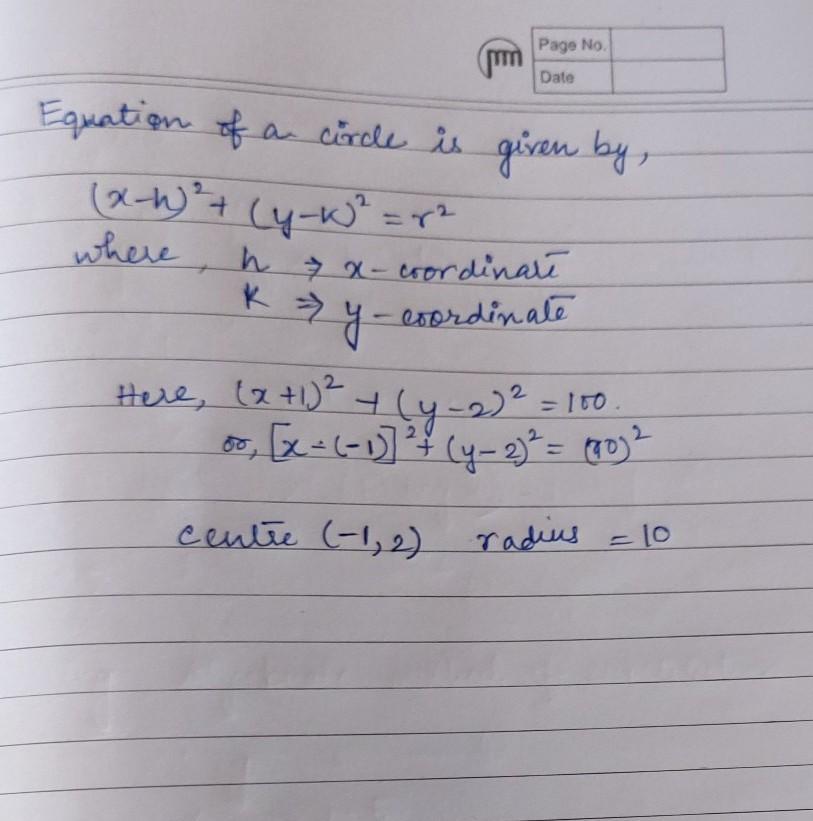 Page No.
Date
Equation of a circle is given by,
(x-h)² + (y-k)² = r²
where, h ⇒ x-coordinate
k ⇒ y-coordinate
Here, (x+1)² + (y-2)² = 100.
or, [x-(-1)]² + (y-2)² = (10)²
centre (-1,2) radius = 10